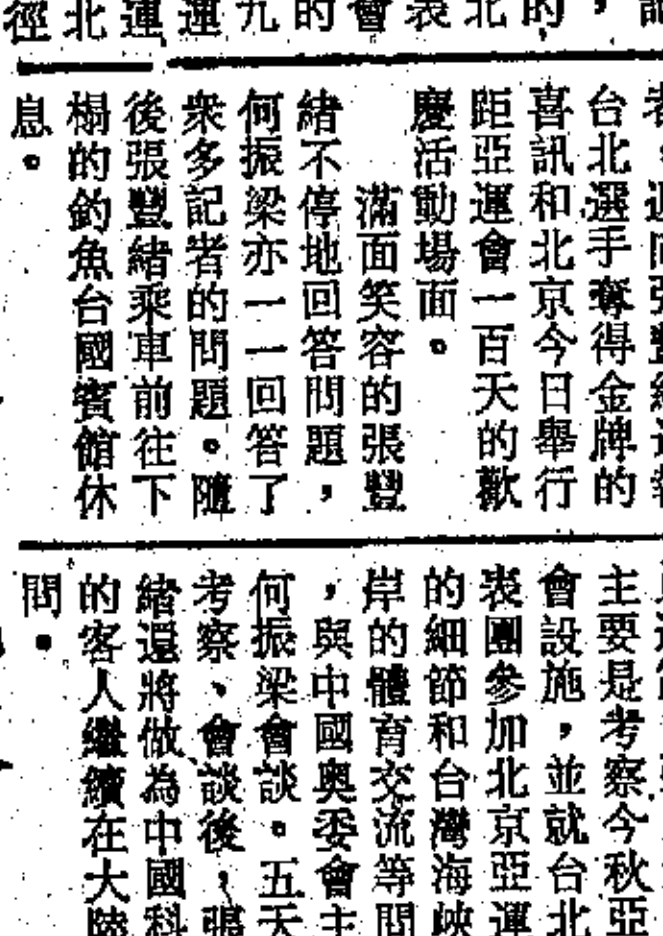 ，
的
北
表
會
的
九
運
運
北
徑
台北選手奪得金牌的
喜訊和北京今日舉行
距亞運會一百天的歡
慶活動場面。
滿面笑容的張豐
緒不停地回答問題，
何振梁亦一一回答了
衆多記者的問題。隨
後張豐緒乘車前往下
榻的釣魚台國賓館休
息。
主要是考察今秋亞
會設施，並就台北
表團參加北京亞運
的細節和台灣海峽
岸的體育交流等問
，與中國奧委會主
何振梁會談。五天
考察、會談後，張
緒還將做為中國科
的客人繼續在大陸
問。